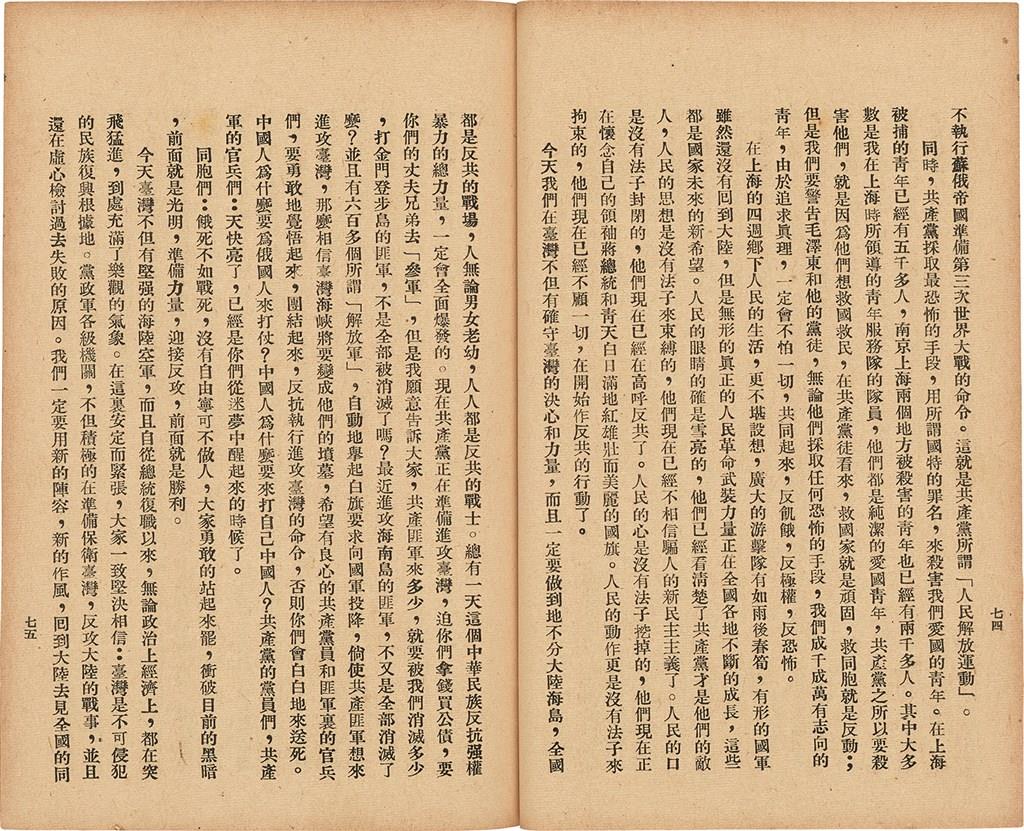 不執行蘇俄帝國準備第三次世界大戰的命令。這就是共產黨所謂「人民解放運動」。
同時，共產黨採取最恐怖的手段，用所謂國特的罪名，來殺害我們愛國的靑年。在上海
被捕的靑年已經有五千多人，南京上海兩個地方被殺害的靑年也已經有兩千多人。其中大多
數是我在上海時所領導的靑年服務隊的隊員，他們都是純潔的愛國靑年，共產黨之所以要殺
害他們，就是因為他們想救國救民，在共產黨徒看來，救國家就是頑固，救同胞就是反動；
但是我們要警吿毛澤東和他的黨徒，無論他們採取任何恐怖的手段，我們成千成萬有志向的
靑年，由於追求眞理，一定會不怕一切，共同起來，反飢餓，反極權，反恐怖。
在上海的四週鄕下人民的生活，更不堪設想，廣大的游擊隊有如雨後春筍，有形的國軍
雖然還沒有囘到大陸，但是無形的眞正的人民革命武裝力量正在全國各地不斷的成長，這些
都是國家未來的新希望。人民的眼睛的確是雪亮的，他們已經看淸楚了共產黨才是他們的敵
人，人民的思想是沒有法子來束縛的，他們現在已經不相信騙人的新民主主義了。人民的口
是沒有法子封閉的，他們現在已經在高呼反共了。人民的心是沒有法子挖掉的，他們現在正
在懷念自己的領袖蔣總統和靑天白日滿地紅雄壯而美麗的國旗。人民的動作更是沒有法子來
拘束的，他們現在已經不顧一切，在開始作反共的行動了。
今天我們在臺灣不但有確守臺灣的決心和力量，而且一定要做到地不分大陸海島，全國
七四
都是反共的戰場，人無論男女老幼，人人都是反共的戰士。總有一天這個中華民族反抗强權
暴力的總力量，一定會全面爆發的。現在共產黨正在準備進攻臺灣，迫你們拿錢買公債，要
你們的丈夫兄弟去「參軍」，但是我願意吿訴大家，共產匪軍來多少，就要被我們消滅多少
，打金門登步島的匪軍，不是全部被消滅了嗎？最近進攻海南島的匪軍，不又是全部消滅了
麼？並且有六百多個所謂「解放軍」，自動地舉起白旗要求向國軍投降，倘使共產匪軍想來
進攻臺灣，那麼相信臺灣海峽將要變成他們的墳墓，希望有良心的共產黨員和匪軍裏的官兵
們，要勇敢地覺悟起來，團結起來，反抗執行進攻臺灣的命令，否則你們會白白地來送死。
中國人爲什麼要爲俄國人來打仗？中國人爲什麼要來打自己中國人？共產黨的黨員們，共產
軍的官兵們：天快亮了，已經是你們從迷夢中醒起來的時候了。
同胞們：餓死不如戰死，沒有自由寧可不做人，大家勇敢的站起來罷，衝破目前的黑暗
，前面就是光明，準備力量，迎接反攻，前面就是勝利。
今天臺灣不但有堅强的海陸空軍，而且自從總統復職以來，無論政治上經濟上，都在突
飛猛進，到處充滿了樂觀的氣象。在這裏安定而緊張，大家一致堅決相信：臺灣是不可侵犯
的民族復興根據地。黨政軍各級機關，不但積極的在準備保衛臺灣，反攻大陸的戰事，並且
還在虛心檢討過去失敗的原因。我們一定要用新的陣容，新的作風，囘到大陸去見全國的同
七五